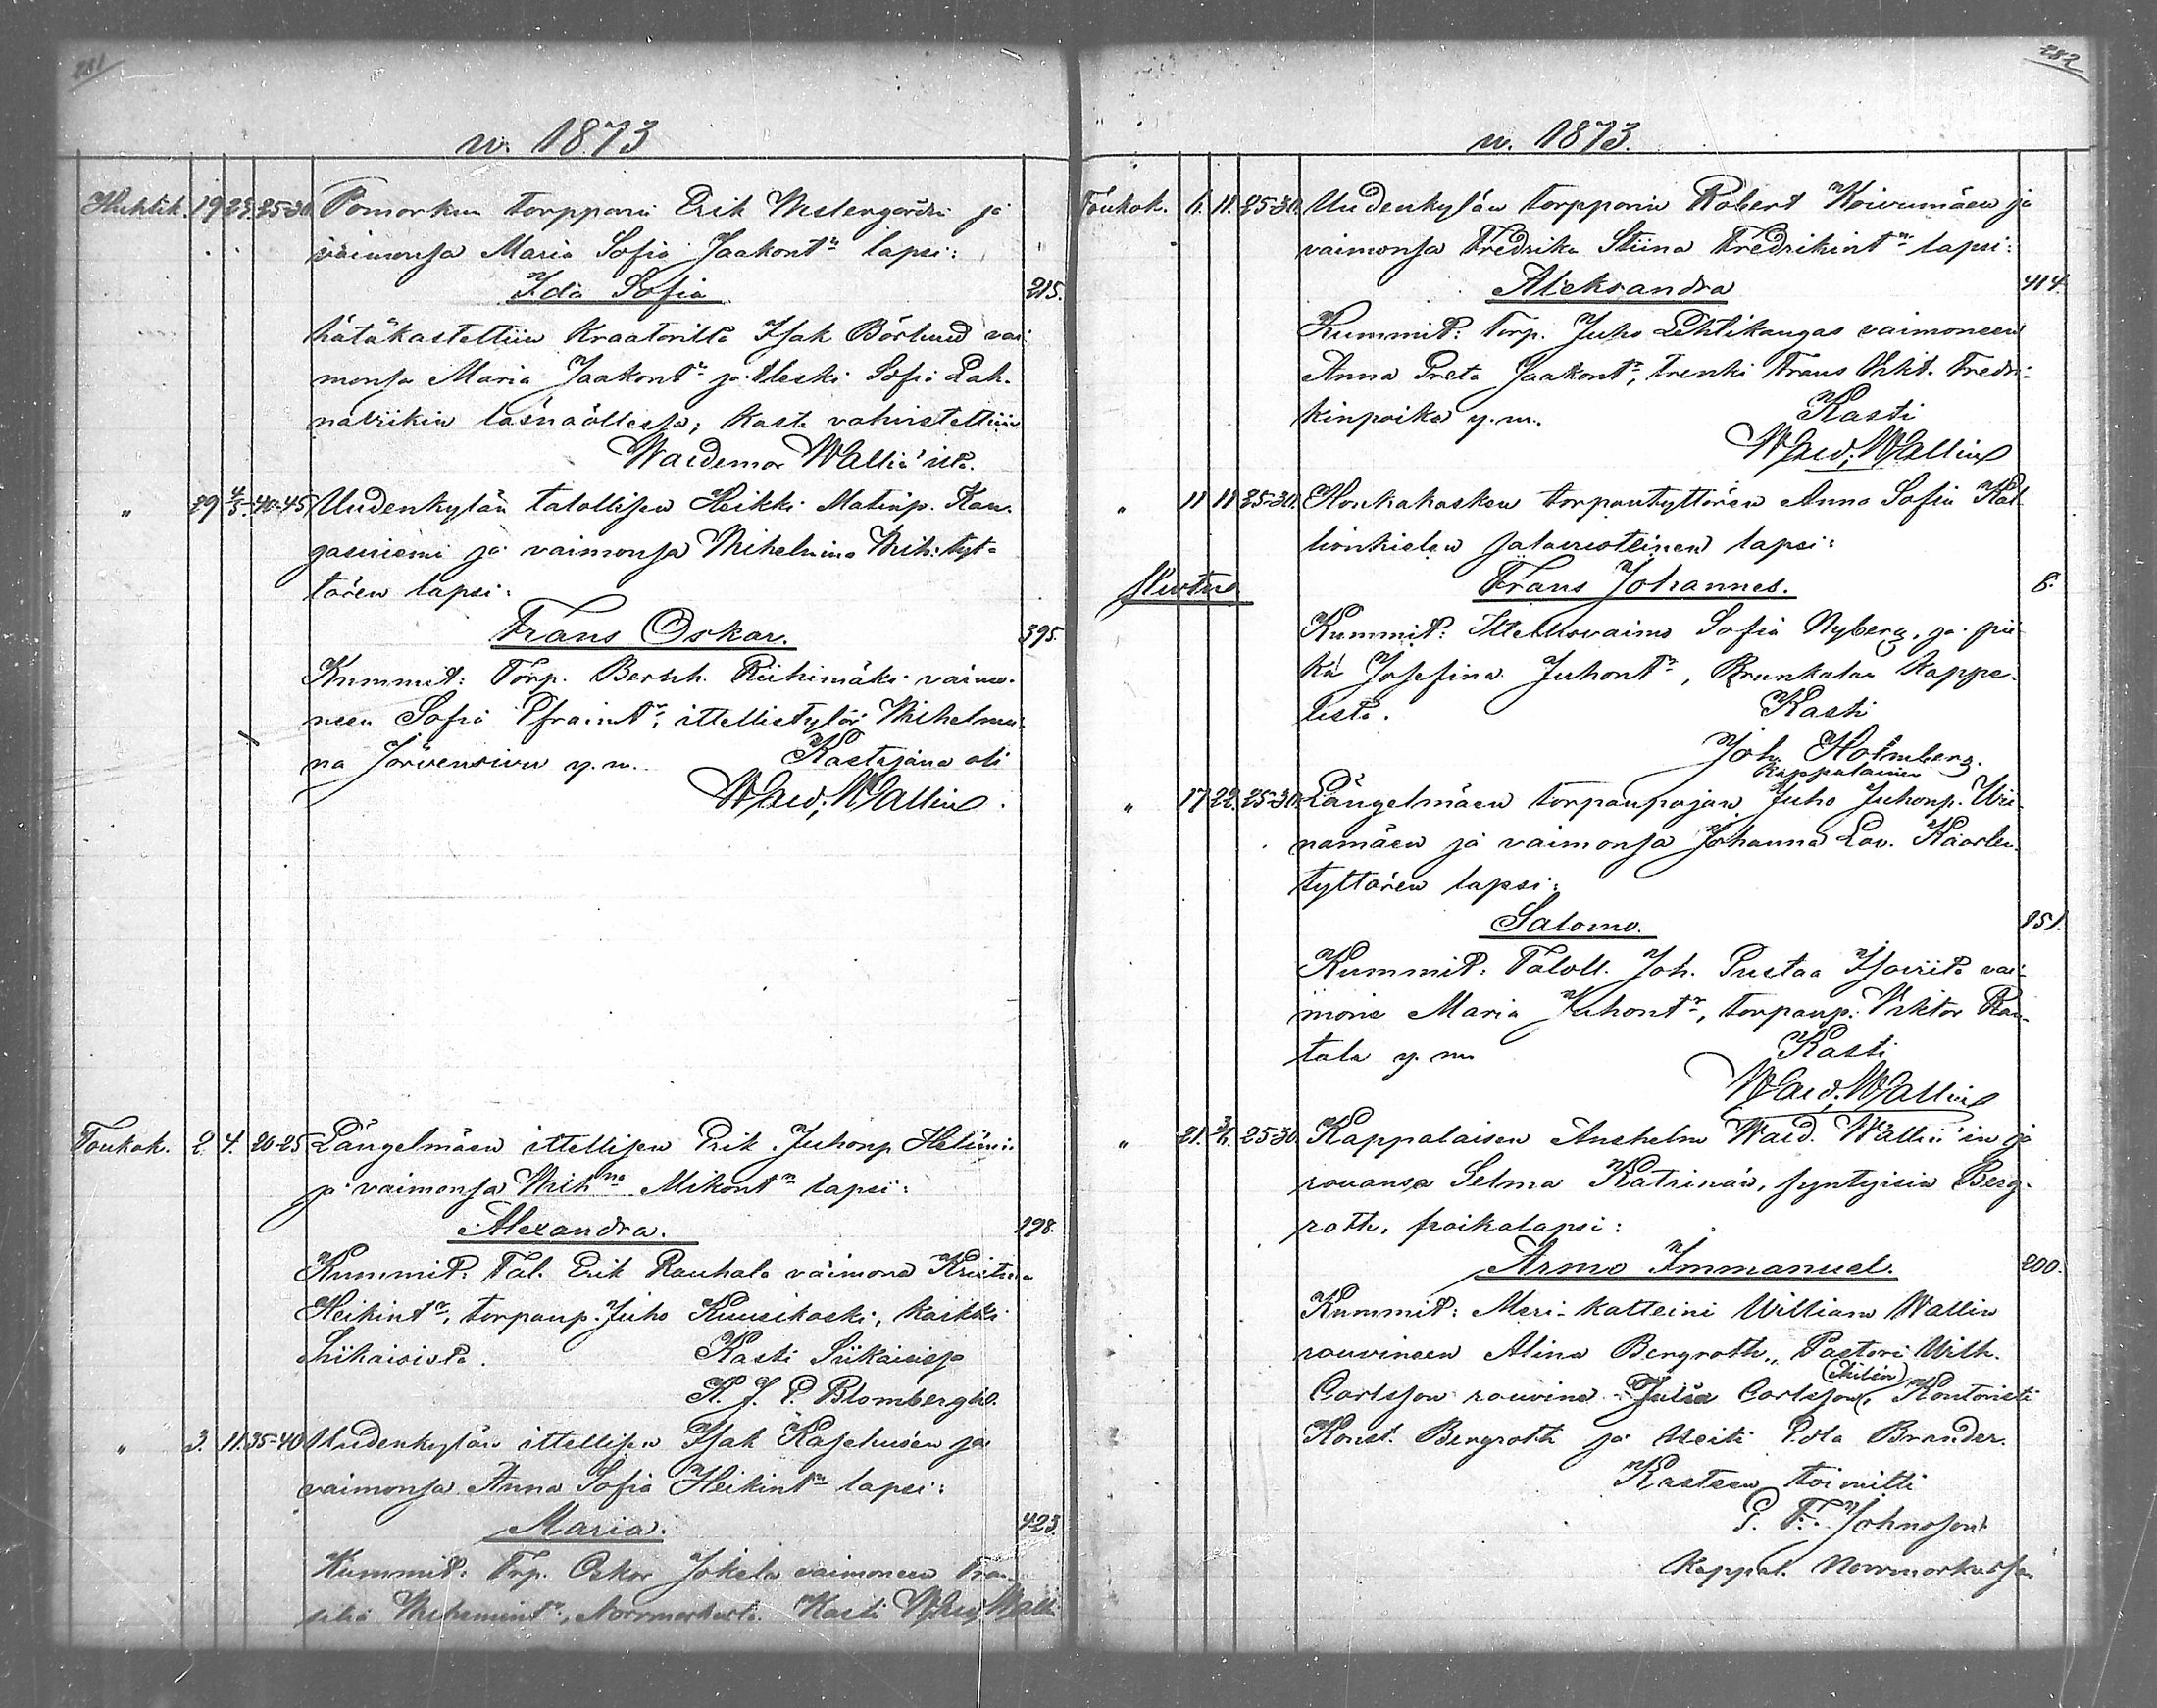 281
v. 1873
Huhtik. 19 27. 25-30 Pomarkun torpparin Erik Westergårdin ja
vaimonsa Maria Sofia Jaakont:n lapsi:
Ida Sofia 215.
hätäkastettiin Kraatorilta Isak Börlund vai
monsa Maria Jaakont:n ja leski Sofia Lah-
läsnäollessa; kaste vahvistettiin
Waldemar Wallin'ilta.
" 29 4/5. 40-45 Uudenkylän talollisen Heikki Matinp. Kan-
gasniemi ja vaimonsa Wilhelmina Wilh: tyt-
tären lapsi:
Frans Oskar. 395.
Kummit: Torp. Bernh. Riihimäki vaimo-
neen Sofia Efraint:r, ittellistytär Wilhelmii-
na Järvensivu y.m. Kastajana oli
Wald. Wallin.
Toukok. 2. 4. 20-25 Längelmäen ittellisen Erik Juhonp Helini:
ja vaimonsa Wilh:na Mikont:n lapsi:
Alexandra. 198.
Kummit: Tal. Erik Rauhala vaimona Kristina
Heikint:r, torpanp. Juho Kuusikoski, kaikki
Siikaisista. Kasti Siikaisissa
K. J. E. Blombergh.
" 3. 11. 35-40 Uudenkylän ittellisen Isak Kasehusen ja
vaimonsa Anna Sofia Heikint:n lapsi:
Maria. 423.
Kummit: Trp. Oskar Jokela vaimoneen Fran-
Norrmarkusta. Kasti Wald. Wallin
282
v. 1873.
Toukok. 6. 11. 25-30. Uudenkylän torpparin Robert Koivumäen ja
vaimonsa Fredrika Stiina Fredrikint:n lapsi:
Aleksandra 414.
Kummit: Torp. Juho Lehtikangas vaimoneen
Anna Greta Jaakont:r, trenki Frans Vikt. Fredri-
kinpoika y.m. Kasti
Wald. Wallin
" 11 11 25-30. Honkakosken torpantyttären Anna Sofia Kal-
lionkielen salavuoteinen lapsi:
Muutus
Frans Johannes. 8.
Kummit: Ittellisvaimo Sofia Nyberg, ja pii
ka Josefina Juhont:r, Krunkalan kappe-
lista. Kasti
Joh. Holmberg.
Kappalainen
" 17 22. 25-30. Längelmäen torpanpojan Juho Juhonp. Vii-
namäen ja vaimonsa Johanna Lov. Kaarlen-
tyttären lapsi:
Salomo. 251.
Kummit: Taloll. Joh. Kustaa Isoviita vai-
mone Maria Juhont:r, torpanp. Viktor Ran-
tala y.m. Kasti
Wald. Wallin
" 21. 3/6. 25-30 Kappalaisen Anshelm Wald. Wallin'in ja
rouvansa Selma Katrinan, syntyisin Berg-
roth, poikalapsi:
Armo Immanuel. 200.
Kummit: Meri-katteini William Wallin
rouvineen Alina Bergroth, Pastori Wilh.
Carlsson rouvine Julia Carlsson, Kontoristi
Konst. Bergroth ja Neiti Edla Brander.
Kasteen toimitti
G. F. Johnsson
Kappal. Norrmarkussa